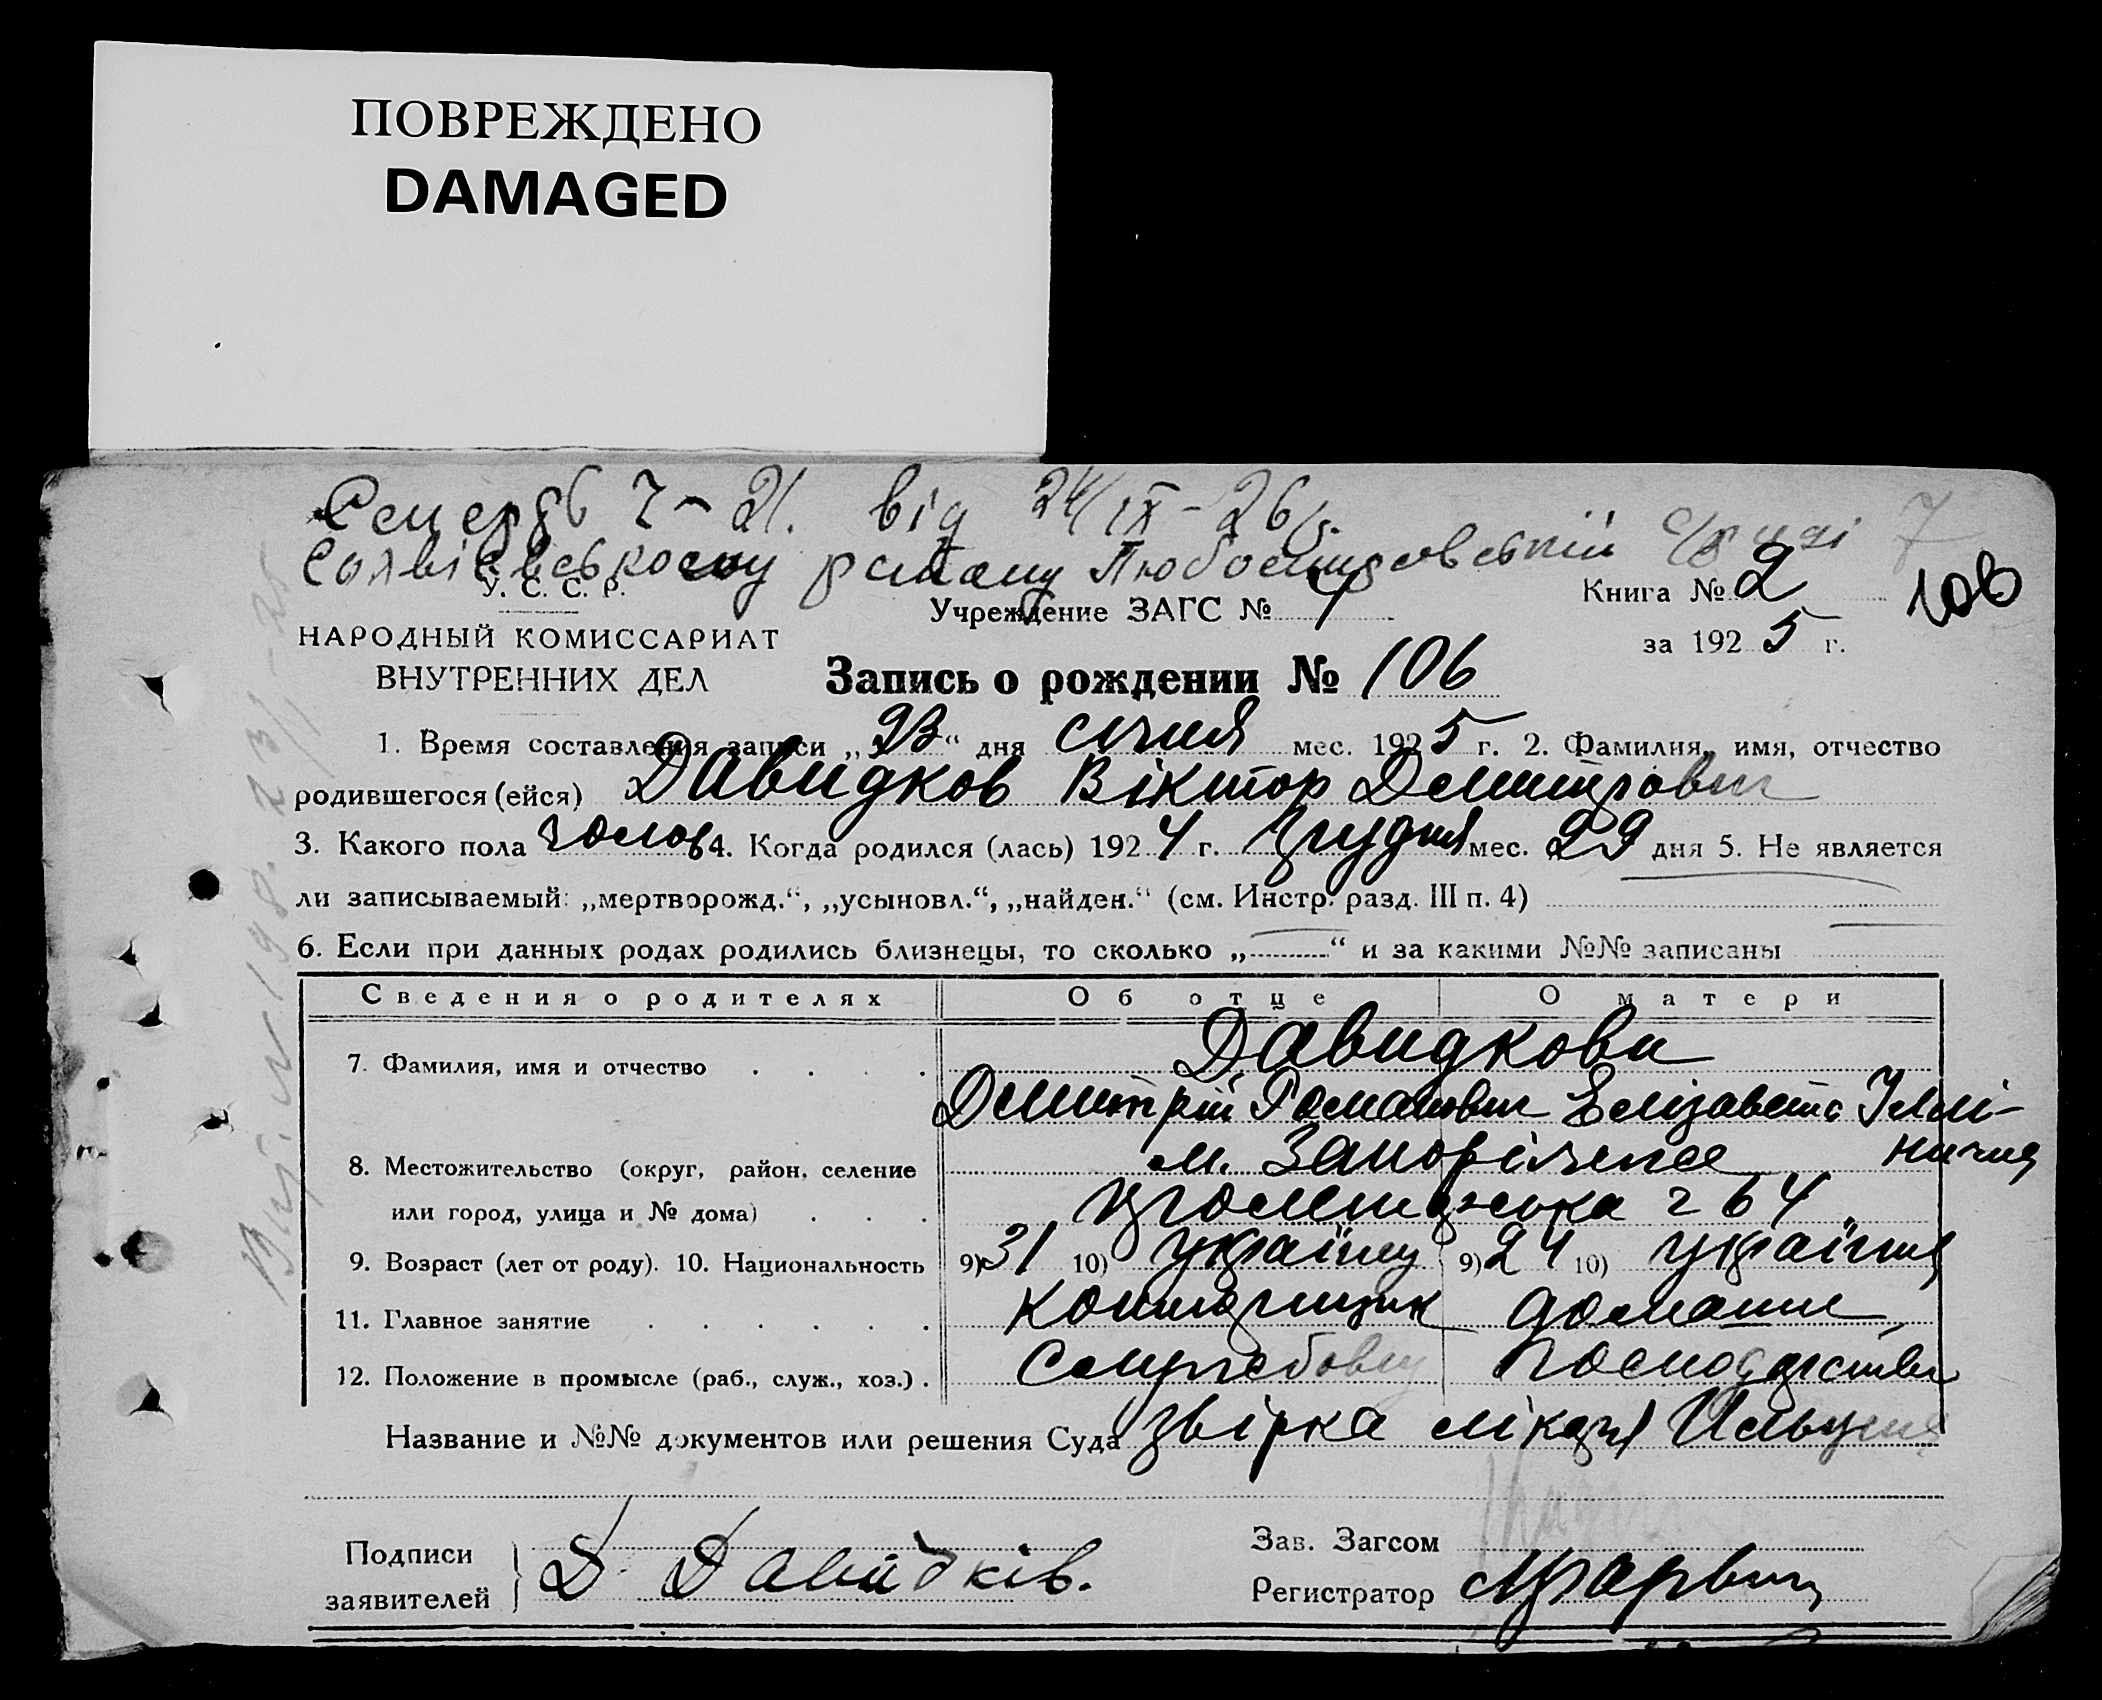 ПОВРЕЖДЕНО
DAMAGED
від 24/IX-26
району
У. С. С. Р.
Учреждение ЗАГС №
Книга № 2
106
НАРОДНЫЙ КОМИССАРИАТ
за 1925 г.
ВНУТРЕННИХ ДЕЛ
Запись о рождении № 106
1. Время составления записи „23“ дня січня мес. 1925 г. 2. Фамилия, имя, отчество
родившегося (ейся) Давидков Віктор Демитрович
3. Какого пола чолов 4. Когда родился (лась) 1924 г. Грудня мес. 29 дня 5. Не является
ли записываемый: „мертворожд.“, „усыновл.“, „найден.“ (см. Инстр. разд. III п. 4)
6. Если при данных родах родились близнецы, то сколько „ “ и за какими №№ записаны
Сведения о родителях Об отце О матери
7. Фамилия, имя и отчество Давидкови
Демитрій Романович Елізавета Іллі-
нична
8. Местожительство (округ, район, селение м. Запоріжжє
или город, улица и № дома) 64
9. Возраст (лет от роду). 10. Национальность 9) 31 10) українц 9) 24 10) україн
11. Главное занятие домашн
12. Положение в промысле (раб., служ., хоз.) Служебовц господарство
Название и №№ документов или решения Суда Звірка лікаря
Подписи
заявителей
Д. Давидків.
Зав. Загсом
Регистратор